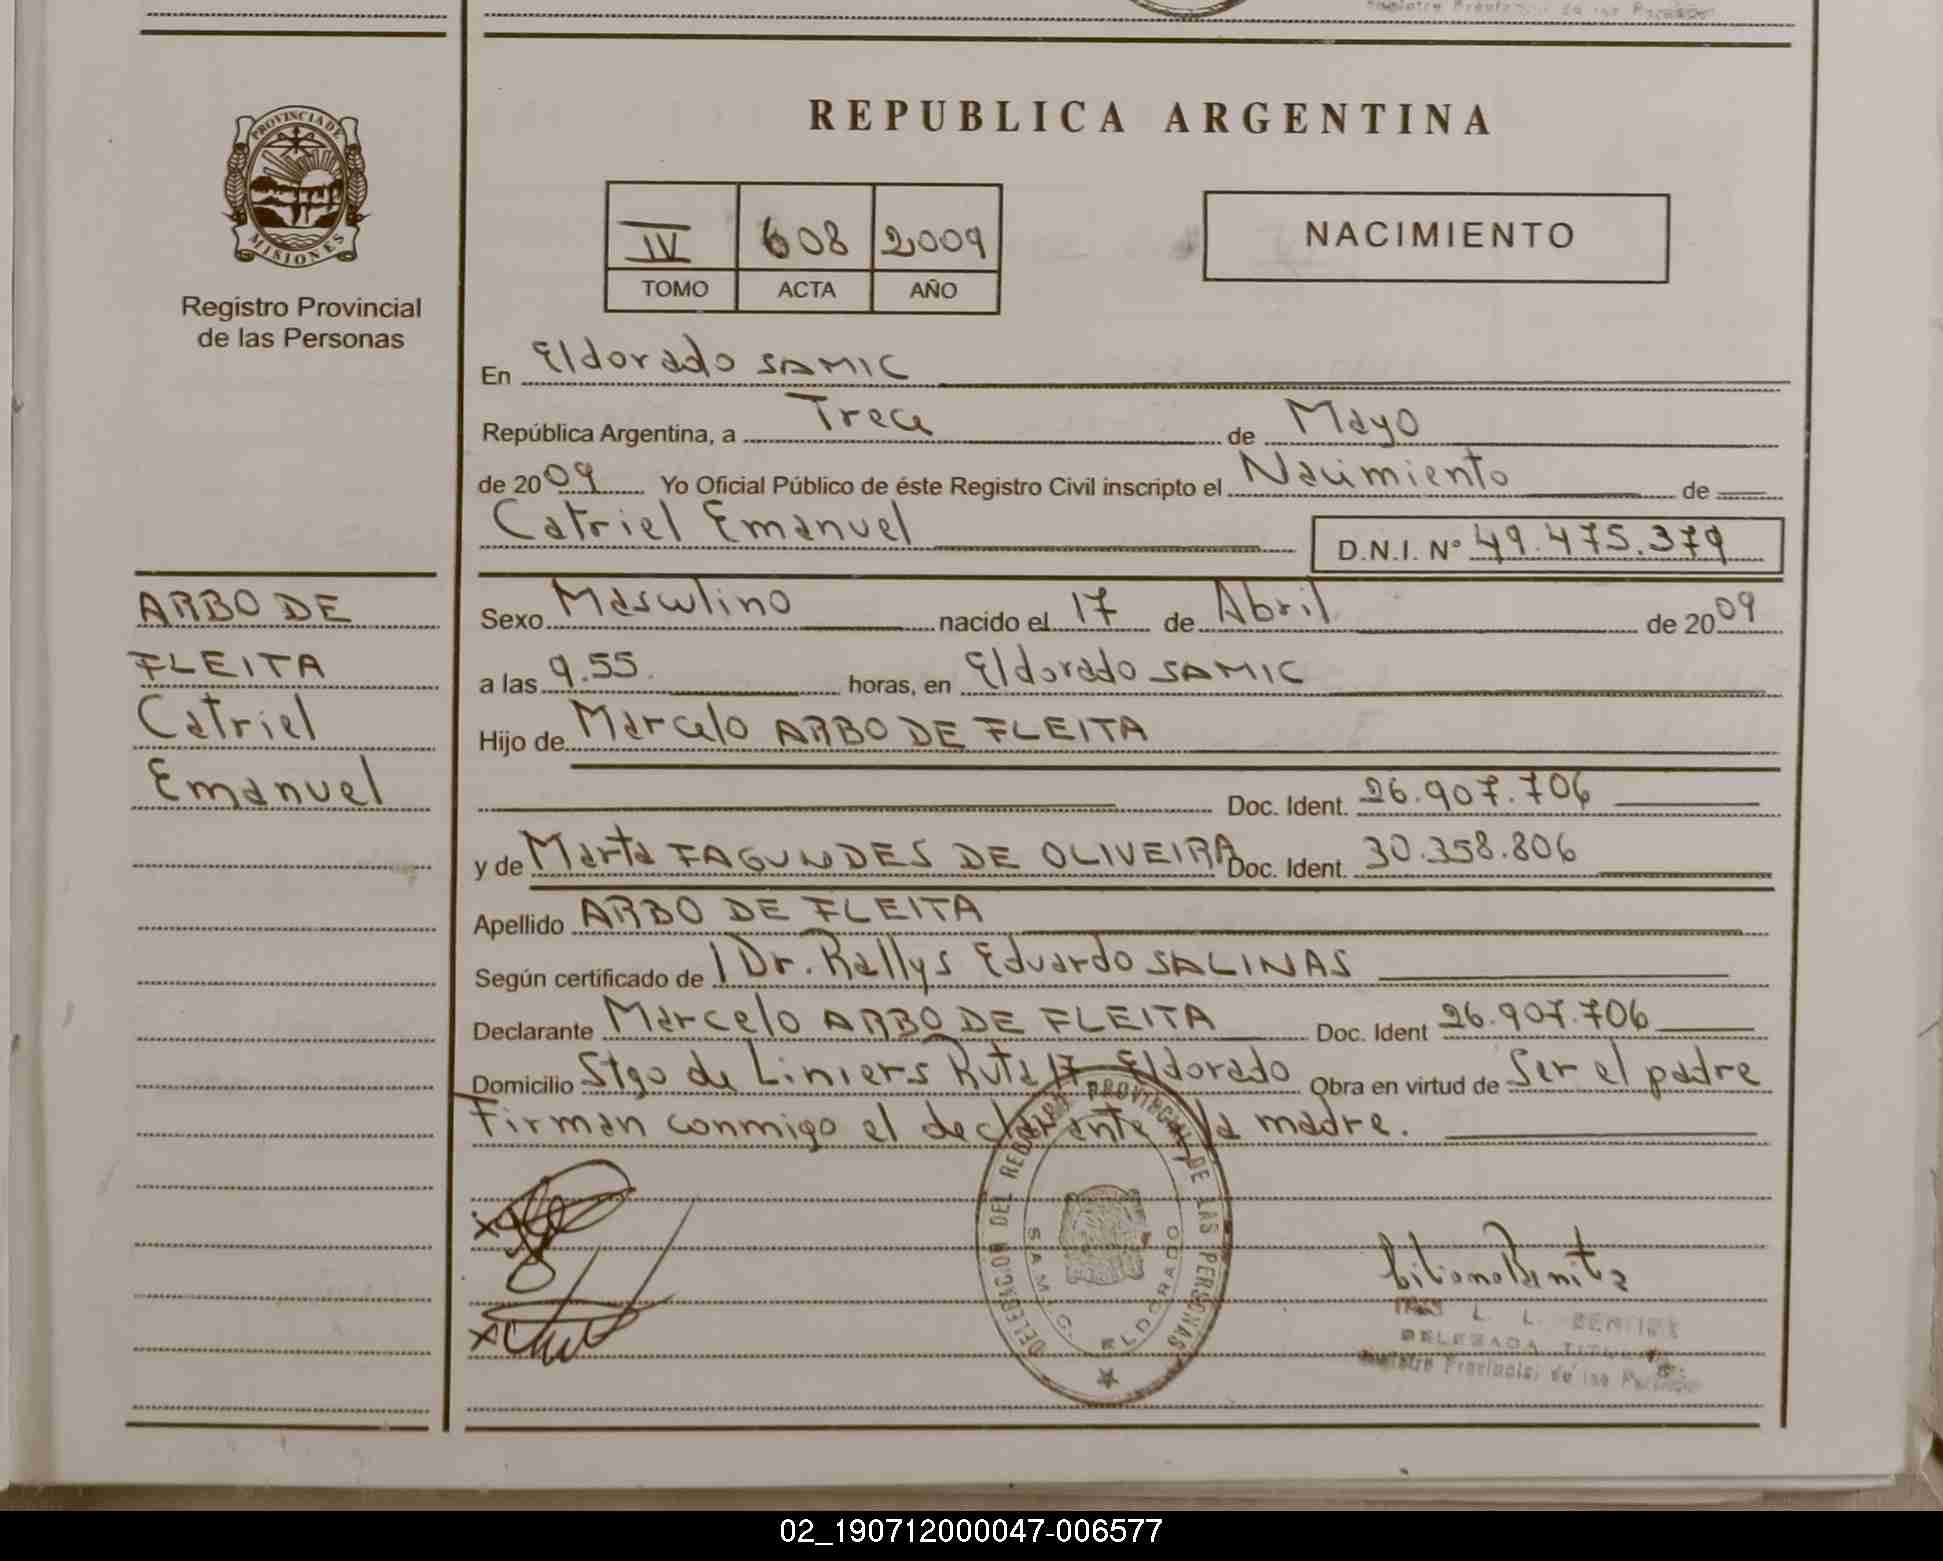 REPUBLICA ARGENTINA
PROVINCIA DE MISIONES
Registro Provincial
de las Personas
IV 608 2009
TOMO ACTA AÑO
NACIMIENTO
En Eldorado SAMIC
República Argentina, a Trece de Mayo
de 2009 Yo Oficial Público de éste Registro Civil inscripto el Nacimiento de
Catriel Emanuel D.N.I. Nº 49.475.379
ARBO DE
FLEITA
Catriel
Emanuel
Sexo Masculino nacido el 17 de Abril de 2009
a las 9.55. horas, en Eldorado SAMIC
Hijo de Marcelo ARBO DE FLEITA
Doc. Ident. 26.907.706
y de Marta FAGUNDES DE OLIVEIRA Doc. Ident. 30.358.806
Apellido ARBO DE FLEITA
Según certificado de Dr. Rallys Eduardo SALINAS
Declarante Marcelo ARBO DE FLEITA Doc. Ident 26.907.706
Domicilio Stgo de Liniers Ruta 17 Eldorado Obra en virtud de Ser el padre
Firman conmigo el declarante y la madre.
DELEGACION DEL REGISTRO PROVINCIAL DE LAS PERSONAS
S.A.M.I.C. ELDORADO
L. L. BENITEZ
DELEGADA TITULAR
Registro Provincial de las Personas
02_190712000047-006577